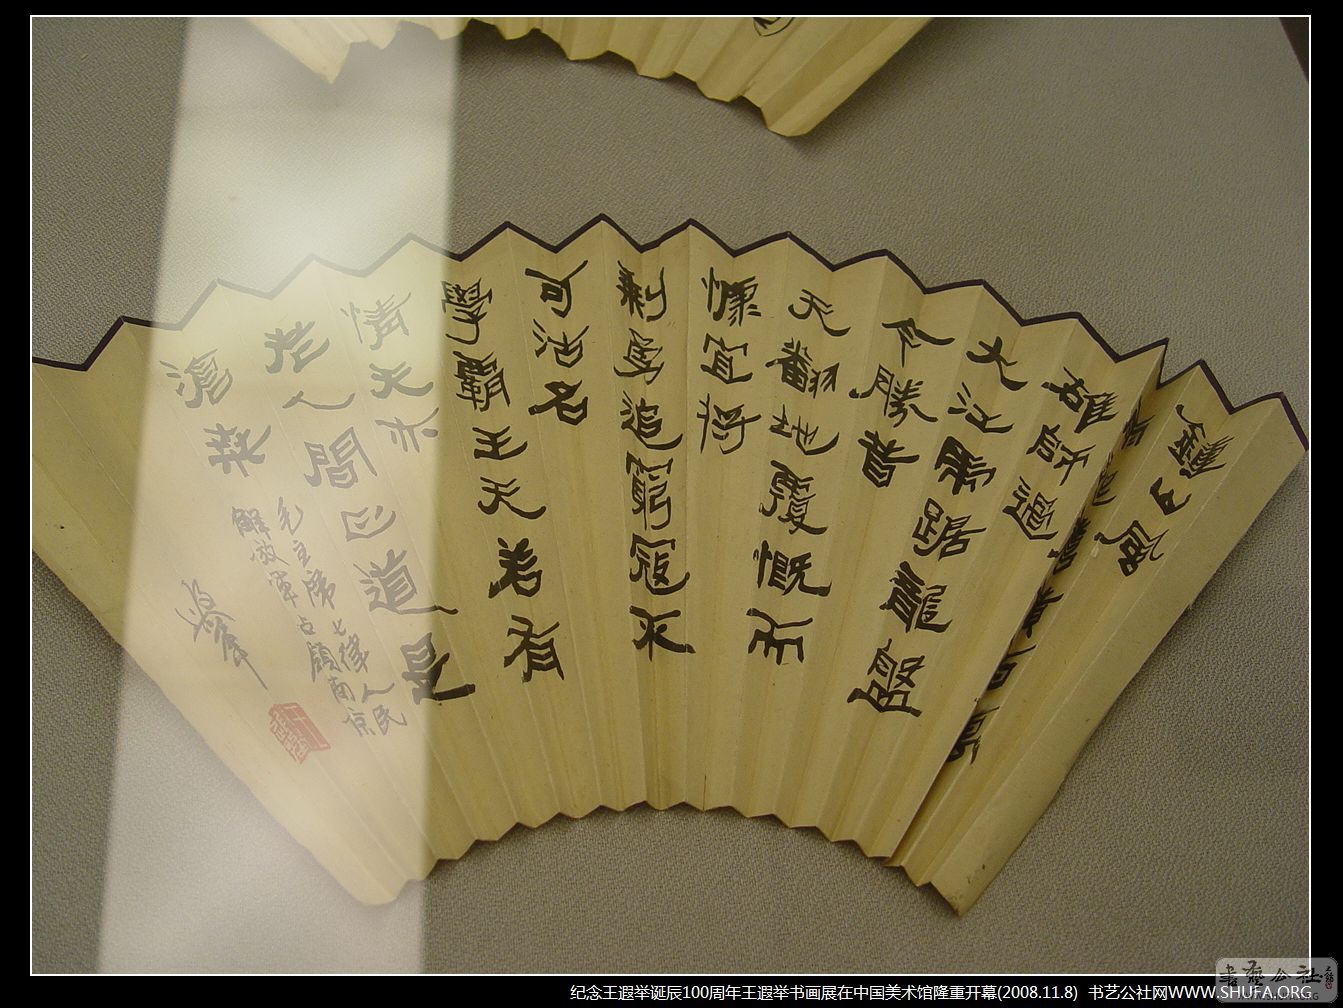 鐘山風
雨起蒼黄百萬
雄師過
大江虎踞龍盤
今勝昔
天翻地覆慨而
慷宜将
剩勇追窮寇不
可沽名
學霸王天若有
情天亦
老人間正道是
滄桑
毛主席七律人民
解放軍占領南京
遐舉
纪念王遐举诞辰100周年王遐举书画展在中国美术馆隆重开幕(2008.11.8) 书艺公社网WWW.SHUFA.ORG
書藝公社